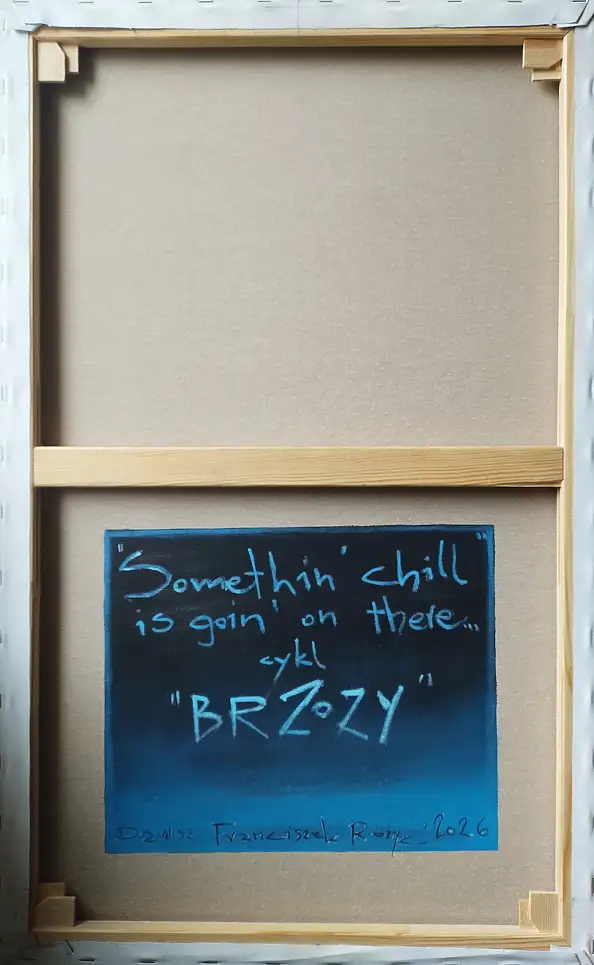 "Somethin' chill"
is goin' on there...
cykl
"BRZOZY"
Dariusz Franciszek Różyc '2026